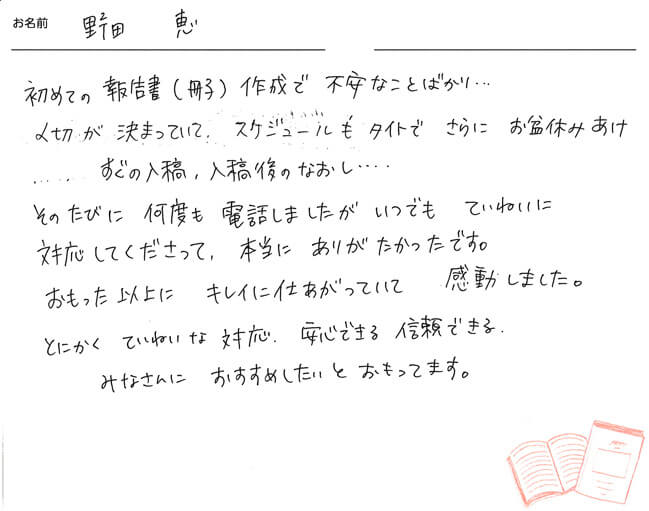 お名前 野田 恵
初めての 報告書(冊子)作成で 不安なことばかり…
〆切が 決まっていて、スケジュールも タイトで さらに お盆休みあけ
……すぐの入稿、入稿後のなおし‥‥
そのたびに 何度も 電話しましたが いつでも ていねいに
対応してくださって、本当に ありがたかったです。
おもった以上に キレイに仕あがっていて 感動しました。
とにかく ていねいな 対応、安心できる 信頼できる、
みなさんに おすすめしたいと おもってます。